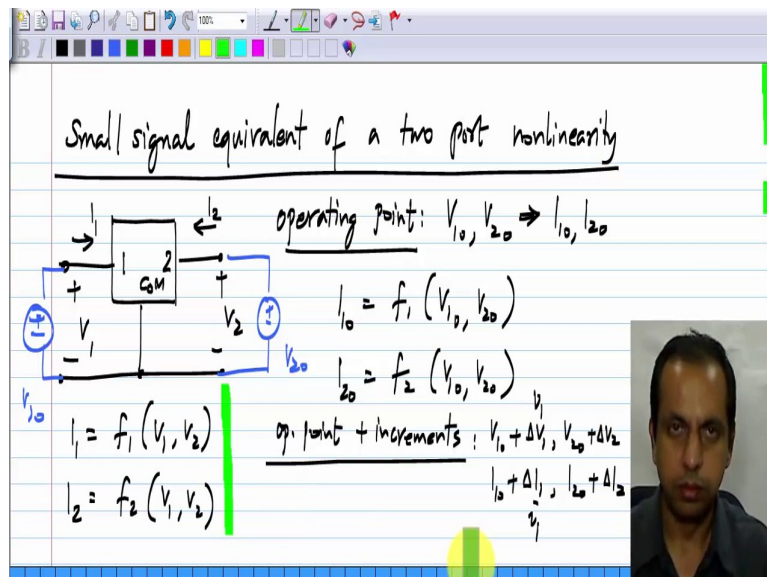 100%
B I
Small signal equivalent of a two port nonlinearity
I1 I2
1 2
COM
+ +
V1 V2
- -
V10 V20
I1 = f1 (V1, V2)
I2 = f2 (V1, V2)
operating point: V10, V20 ⇒ I10, I20
I10 = f1 (V10, V20)
I20 = f2 (V10, V20)
v1
op. point + increments : V10 + ΔV1, V20 + ΔV2
I10 + ΔI1, I20 + ΔI2
i1